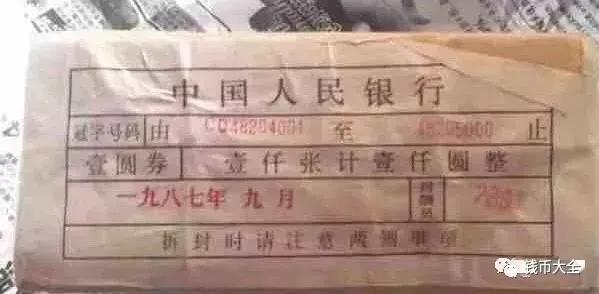 中国人民银行
冠字号码 由 CQ48204001 至 48205000 止
壹圆券 壹仟张计壹仟圆整
一九八七年 九月 封捆员
拆封时请注意两别事项
钱币大全